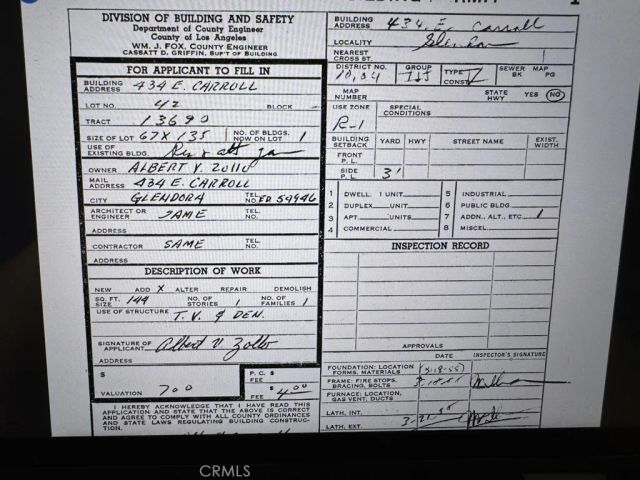 DIVISION OF BUILDING AND SAFETY
Department of County Engineer
County of Los Angeles
WM. J. FOX, COUNTY ENGINEER
CASSATT D. GRIFFIN, SUP'T OF BUILDING
FOR APPLICANT TO FILL IN
BUILDING ADDRESS 434 E. CARROLL
LOT NO. 42 BLOCK
TRACT 13690
SIZE OF LOT 67 X 135 NO. OF BLDGS. NOW ON LOT 1
USE OF EXISTING BLDG.
OWNER ALBERT V. ZOLLO
MAIL ADDRESS 434 E. CARROLL
CITY GLENDORA TEL. NO. ED 54946
ARCHITECT OR ENGINEER SAME TEL. NO.
ADDRESS
CONTRACTOR SAME TEL. NO.
ADDRESS
DESCRIPTION OF WORK
NEW ADD X ALTER REPAIR DEMOLISH
SQ. FT. SIZE 144 NO. OF STORIES 1 NO. OF FAMILIES 1
USE OF STRUCTURE T.V. & DEN.
SIGNATURE OF APPLICANT Albert V Zollo
ADDRESS
$ P.C. $ FEE
VALUATION 700 FEE $ 4.00
I HEREBY ACKNOWLEDGE THAT I HAVE READ THIS
APPLICATION AND STATE THAT THE ABOVE IS CORRECT
AND AGREE TO COMPLY WITH ALL COUNTY ORDINANCES
AND STATE LAWS REGULATING BUILDING CONSTRUC-
TION.
BUILDING ADDRESS 434 E. Carroll
LOCALITY
NEAREST CROSS ST.
DISTRICT NO. 10,04 GROUP TYPE CONST. V SEWER BK MAP PG
MAP NUMBER STATE HWY YES NO
USE ZONE R-1 SPECIAL CONDITIONS
BUILDING SETBACK YARD HWY STREET NAME EXIST. WIDTH
FRONT P. L.
SIDE P. L. 3'
1 DWELL. 1 UNIT 5 INDUSTRIAL
2 DUPLEX UNIT 6 PUBLIC BLDG.
3 APT. UNITS 7 ADDN., ALT., ETC. 1
4 COMMERCIAL 8 MISCEL.
INSPECTION RECORD
APPROVALS
DATE INSPECTOR'S SIGNATURE
FOUNDATION: LOCATION FORMS, MATERIALS
FRAME: FIRE STOPS, BRACING, BOLTS
FURNACE: LOCATION, GAS VENT, DUCTS
LATH, INT.
LATH, EXT. 3-21-55
CRMLS